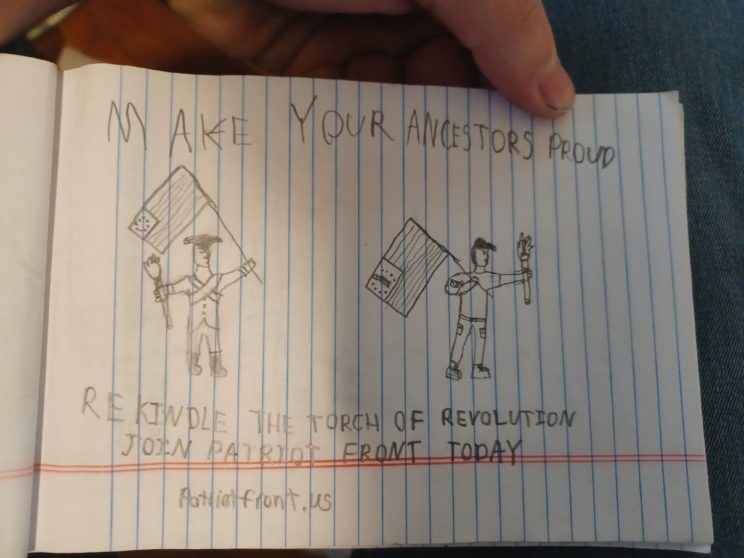 MAKE YOUR ANCESTORS PROUD
REKINDLE THE TORCH OF REVOLUTION
JOIN PATRIOT FRONT TODAY
Patriotfront.us